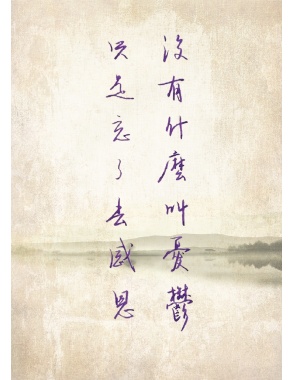 沒有什麼叫憂鬱
只是忘了去感恩